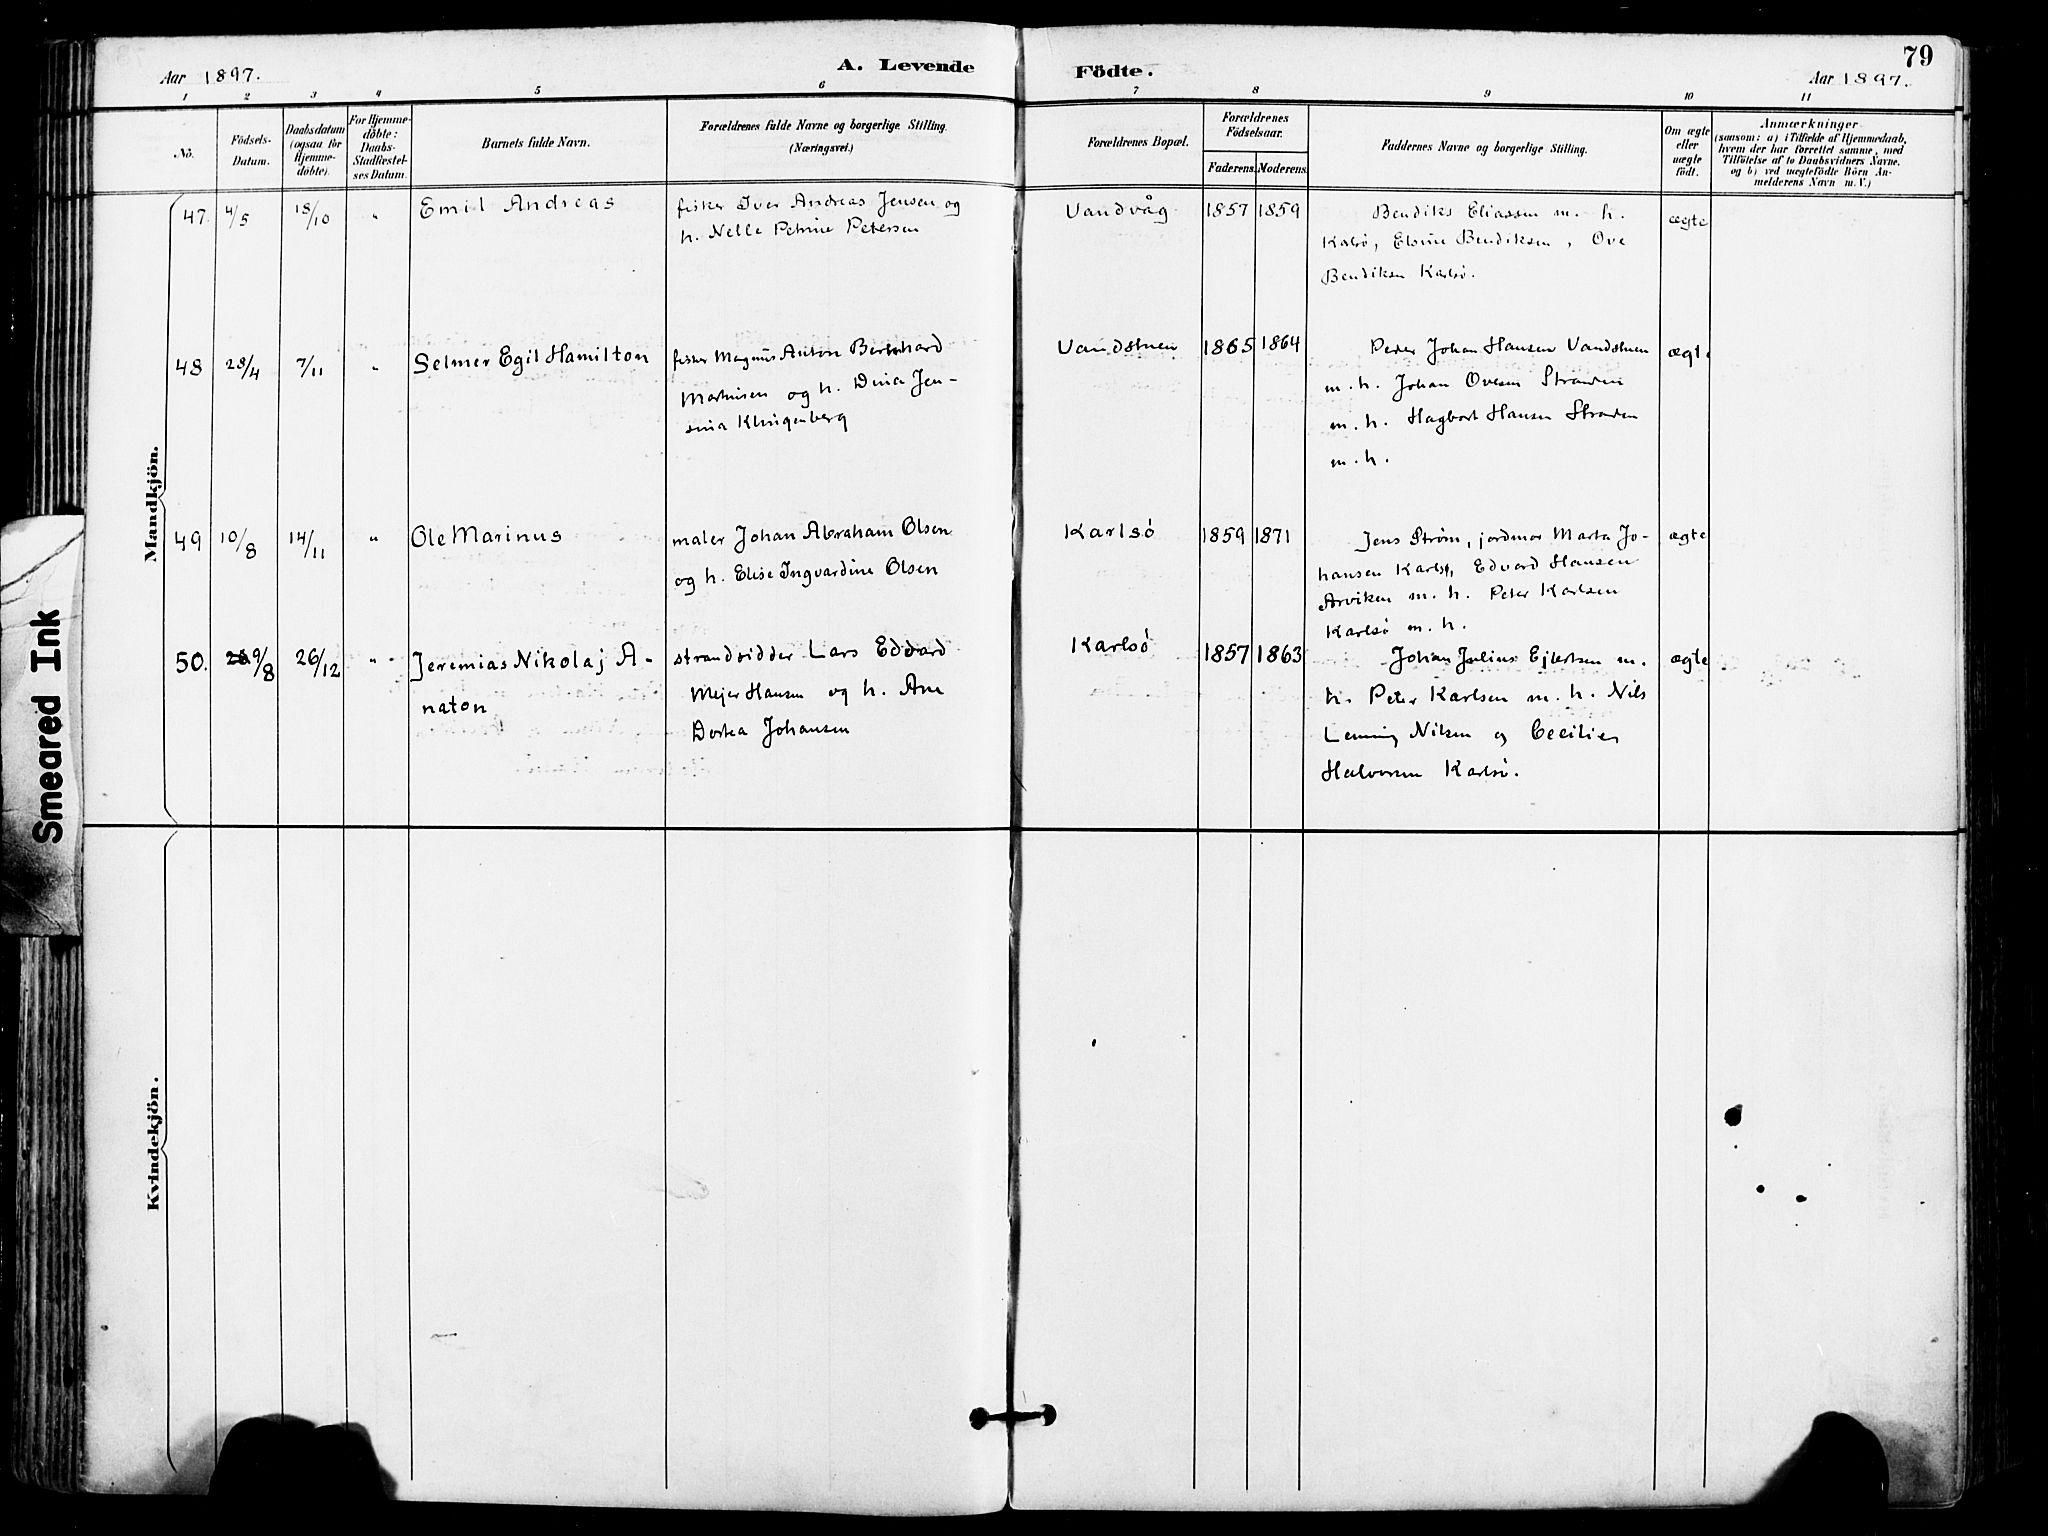 79
Aar 1897.
A. Levende
Födte.
Aar 1897.
1 2 3 4 5 6 7 8 9 10 11
No.
Födsels-
Datum.
Daabsdatum
(ogsaa for
Hjemme-
döbte).
For Hjemme-
döbte:
Daabs-
Stadfæstel-
ses Datum.
Barnets fulde Navn.
Forældrenes fulde Navne og borgerlige Stilling.
(Næringsvei.)
Forældrenes Bopæl.
Forældrenes
Födselsaar.
Faderens. Moderens.
Faddernes Navne og borgerlige Stilling.
Om ægte
eller
uægte
födt.
Anmærkninger
(saasom: a) i Tilfælde af Hjemmedaab,
hvem der har forrettet samme, med
Tilföielse af to Daabsvidners Navne,
og b) ved uægtefödte Börn An-
melderens Navn m. V.)
Mandkjön.
47 4/5 18/10 " Emil Andreas
fisker Iver Andreas Jensen og
h. Nelle Petrine Petersen
Vandvåg 1857 1859
Bendiks Eliassen m. h.
Karlsø, Elsine Bendiksen, Ove
Bendiksen Karlsø.
ægte
48 28/4 7/11 " Selmer Egil Hamilton
fisker Magnus Anton Bernhard
Martinsen og h. Dina Jen-
sina Klingenberg
Vandstuen 1865 1864
Peder Johan Hansen Vandstuen
m. h. Johan Ovesen Stranden
m. h. Hagbart Hansen Stranden
m. h.
ægte
49 10/8 14/11 " Ole Marinus
maler Johan Abraham Olsen
og h. Elise Ingvardine Olsen
Karlsö 1859 1871
Jens Strøm, jordmor Marta Jo-
hansen Karlsø, Edvard Hansen
Arviken m. h. Peter Karlsen
Karlsø m. h.
ægte
50. 9/8 26/12 " Jeremias Nikolaj A-
naton
strandsidder Lars Edvard
Mejer Hansen og h. Ane
Dortea Johansen
Karlsö 1857 1863
Johan Julius Ejlertsen m.
h. Peter Karlsen m. h. Nils
Lenning Nilsen og Cecilie
Halvorsen Karlsø.
ægte
Kvindekjön.
Smeared Ink